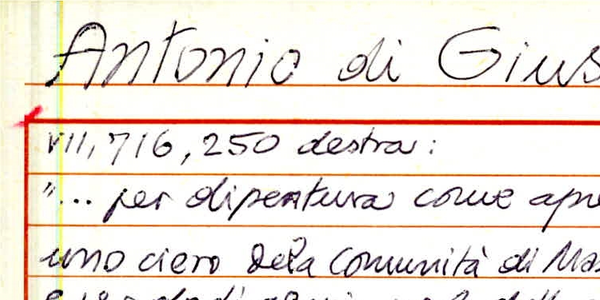 Antonio di Gius
VII, 716, 250 destra:
"... per dipentura come apre
uno ciero dela Comunità di Mas